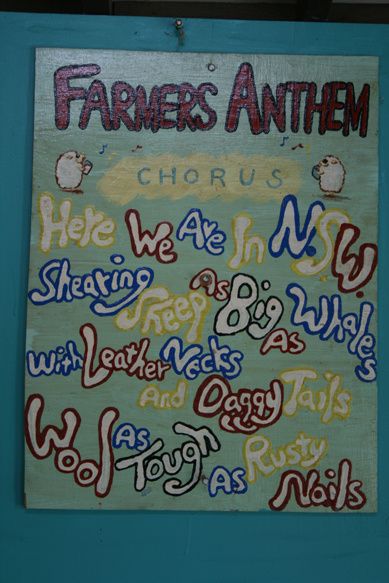 FARMERS ANTHEM
CHORUS
Here We Are In N.S.W.
Shearing Sheep As Big As Whales
With Leather Necks
And Daggy Tails
Wool As Tough As Rusty Nails